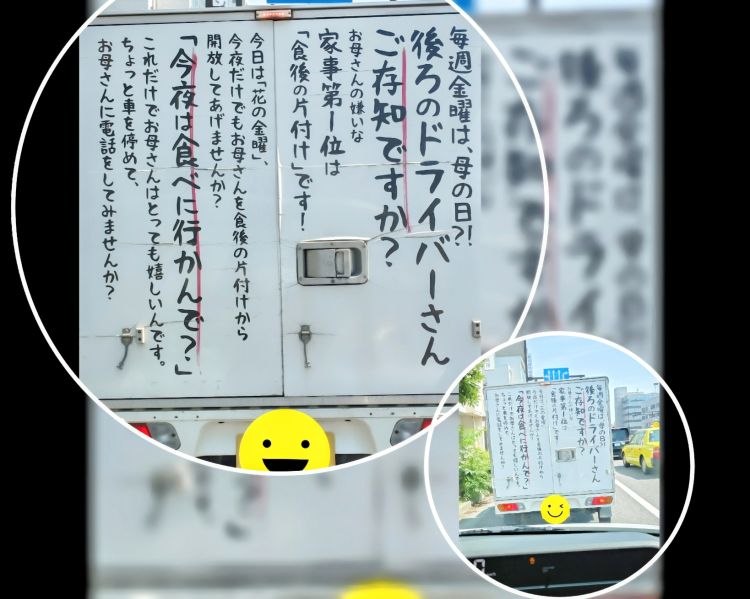 毎週金曜は、母の日?!
後ろのドライバーさん
ご存知ですか?
お母さんの嫌いな
家事第1位は
「食後の片付け」です!
今日は「花の金曜」、
今夜だけでもお母さんを食後の片付けから
開放してあげませんか?
「今夜は食べに行かんで?」
これだけでお母さんはとっても嬉しいんです。
ちょっと車を停めて、
お母さんに電話をしてみませんか?